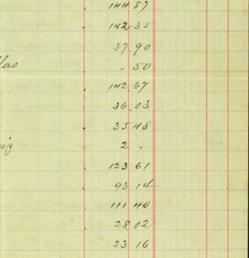 144 57
142 35
37 90
las . 50
142 67
36 03
35 48
ig 2 .
123 61
93 14
111 40
28 02
23 16